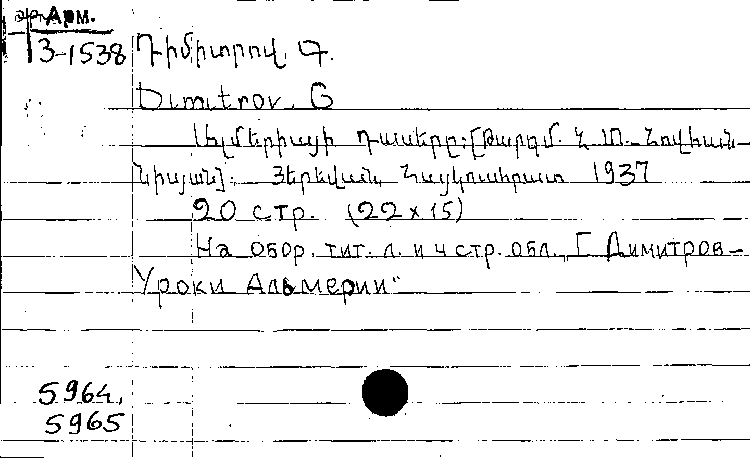 Арм.
3-1538
Դիմիտրով, Գ.
Dimitrov, G
Ալմերիայի դասերը: [Թարգմ. Հ. Մ. Հովհան-
նիսյան]: Յերեվան, Հայկուսհրատ 1937
20 стр. (22 x 15)
На обор. тит. л. и 4 стр. обл. „Г. Димитров-
Уроки Альмерии“
5964,
5965